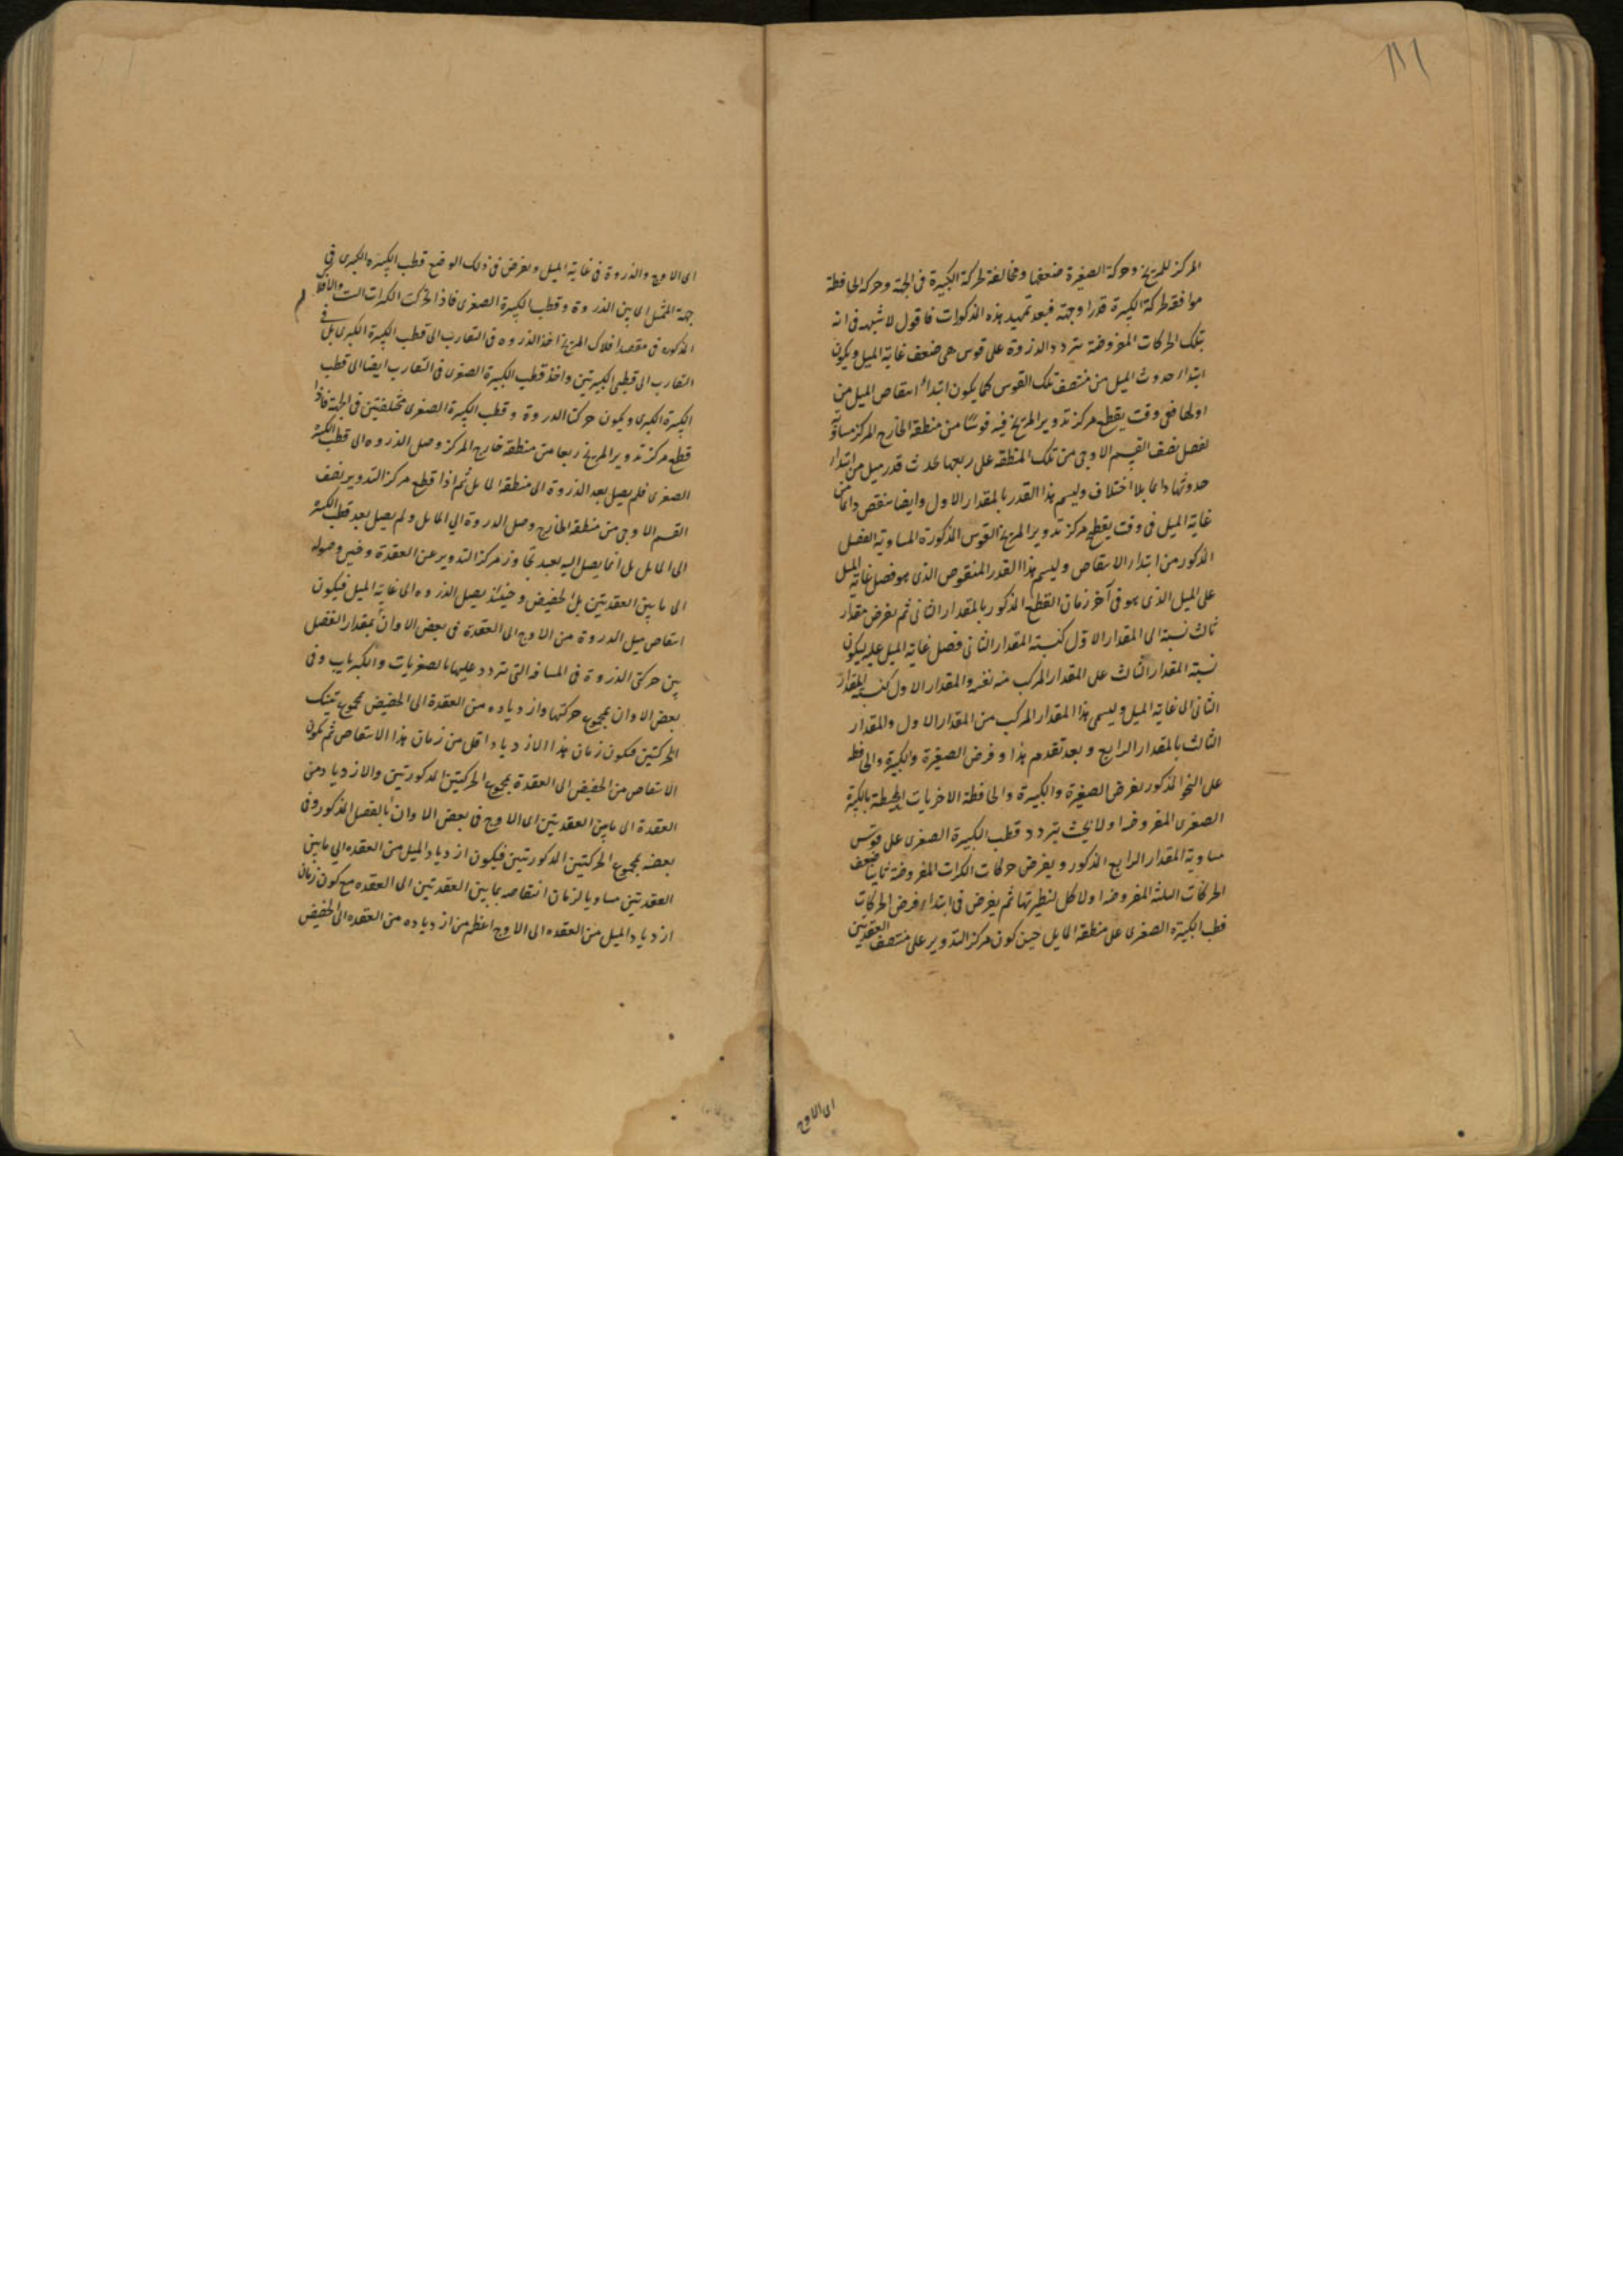 ١١١
المركز للمريخ وحركة الصغيرة ضعفها ومخالفة لحركة الكبيرة فى الجهة وحركة الحافظة
موافقة لحركة الكبيرة قدرا وجهة فبعد تمهيد هذه المذكورات فاقول لا شبهه فى انه
بتلك الحركات المفروضة يتردد الذروة على قوس هى ضعف غاية الميل ويكون
ابتداء حدوث الميل من منتصف تلك القوس كما يكون ابتداء انتقاص الميل من
اولها ففى وقت يقطع مركز تدوير المريخ فيه قوسًا من منطقة الخارج المركز مساوية
لفصل نصف القسم الاوجى من تلك المنطقة على ربعها يحدث قدر ميل من ابتداء
حدوثها دائما بلا اختلاف وليسم هذا القدر بالمقدار الاول وايضا ينقص دائما من
غاية الميل فى وقت يقطع مركز تدوير المريخ القوس المذكورة المساوية لفصل
المذكور من ابتداء الانتقاص وليسم هذا القدر المنقوص الذى هو فصل غاية الميل
على الميل الذى هو فى آخر زمان القطع المذكور بالمقدار الثانى ثم يفرض مقدار
ثالث نسبة الى المقدار الاول كنسبة المقدار الثانى فصل غاية الميل عليه ليكون
نسبة المقدار الثالث على المقدار المركب منه نفسه والمقدار الاول كنسبة المقدار
الثانى الى غاية الميل وليسمى هذا المقدار المركب من المقدار الاول والمقدار
الثالث بالمقدار الرابع وبعد تقدم هذا وفرض الصغيرة والكبيرة والحافظة
على النحو المذكور يفرض الصغيرة والكبيرة والحافظة الاخريات المحيطة بالكبيرة
الصغرى المفروضة اولا بحيث يتردد قطب الكبيرة الصغرى على قوس
مساوية المقدار الرابع المذكور ويفرض حركات الكرات المفروضة ثانيا ضعف
الحركات الثلثة المفروضة اولا كل لنظيرتها ثم يفرض فى ابتداء فرض الحركات
قطب الكبيرة الصغرى على منطقة المايل حين كون مركز التدوير على منتصف العقدتين
اى الاوج
اى الاوج والذروة فى غاية الميل ويفرض فى ذلك الوضع قطب الكبيرة الكبرى فى
جهة الممثل اى بين الذروة وقطب الكبيرة الصغرى فاذا تحركت الكرات الست والافلاك
المذكورة فى مقصد افلاك المريخ اخذ الذروه فى التقارب الى قطب الكبيرة الكبرى بل فى
التقارب الى قطبى الكبيرتين واخذ قطب الكبيرة الصغرى فى التقارب ايضا الى قطب
الكبيرة الكبرى ويكون حركتا الذروة وقطب الكبيرة الصغرى مختلفتين فى الجهة فاذا
قطع مركز تدوير المريخ ربعا من منطقة خارج المركز وصل الذروه الى قطب الكبيرة
الصغرى فلم يصل بعد الذروة الى منطقة المايل ثم اذا قطع مركز التدوير نصف
القسم الاوجى من منطقة الخارج وصل الذروة الى المايل ولم يصل بعد قطب الكبيرة
الى المايل بل انما يصل اليه بعيد تجاوز مركز التدوير عن العقدة وحين وصوله
الى ما بين العقدتين بل الحضيض وحينئذ يصل الذروه الى غاية الميل فيكون
انتقاص ميل الذروة من الاوج الى العقدة فى بعض الاوان بمقدار الفصل
بين حركتى الذروة فى المسافة التى يتردد عليها بالصغريات والكبريات وفى
بعض الاوان بمجموع حركتيها وازدياده من العقدة الى الحضيض بمجموع تينك
الحركتين فيكون زمان هذا الازدياد اقل من زمان هذا الانتقاص ثم يكون
الانتقاص من الحضيض الى العقدة بمجموع الحركتين المذكورتين والازدياد من
العقدة الى ما بين العقدتين اى الاوج فى بعض الاوان بالفصل المذكور وفى
بعضه بمجموع الحركتين المذكورتين فيكون ازدياد الميل من العقده الى ما بين
العقدتين مساويا لزمان انتقاصه مما بين العقدتين الى العقده مع كون زمان
ازدياد الميل من العقده الى الاوج اعظم من ازدياده من العقده الى الحضيض